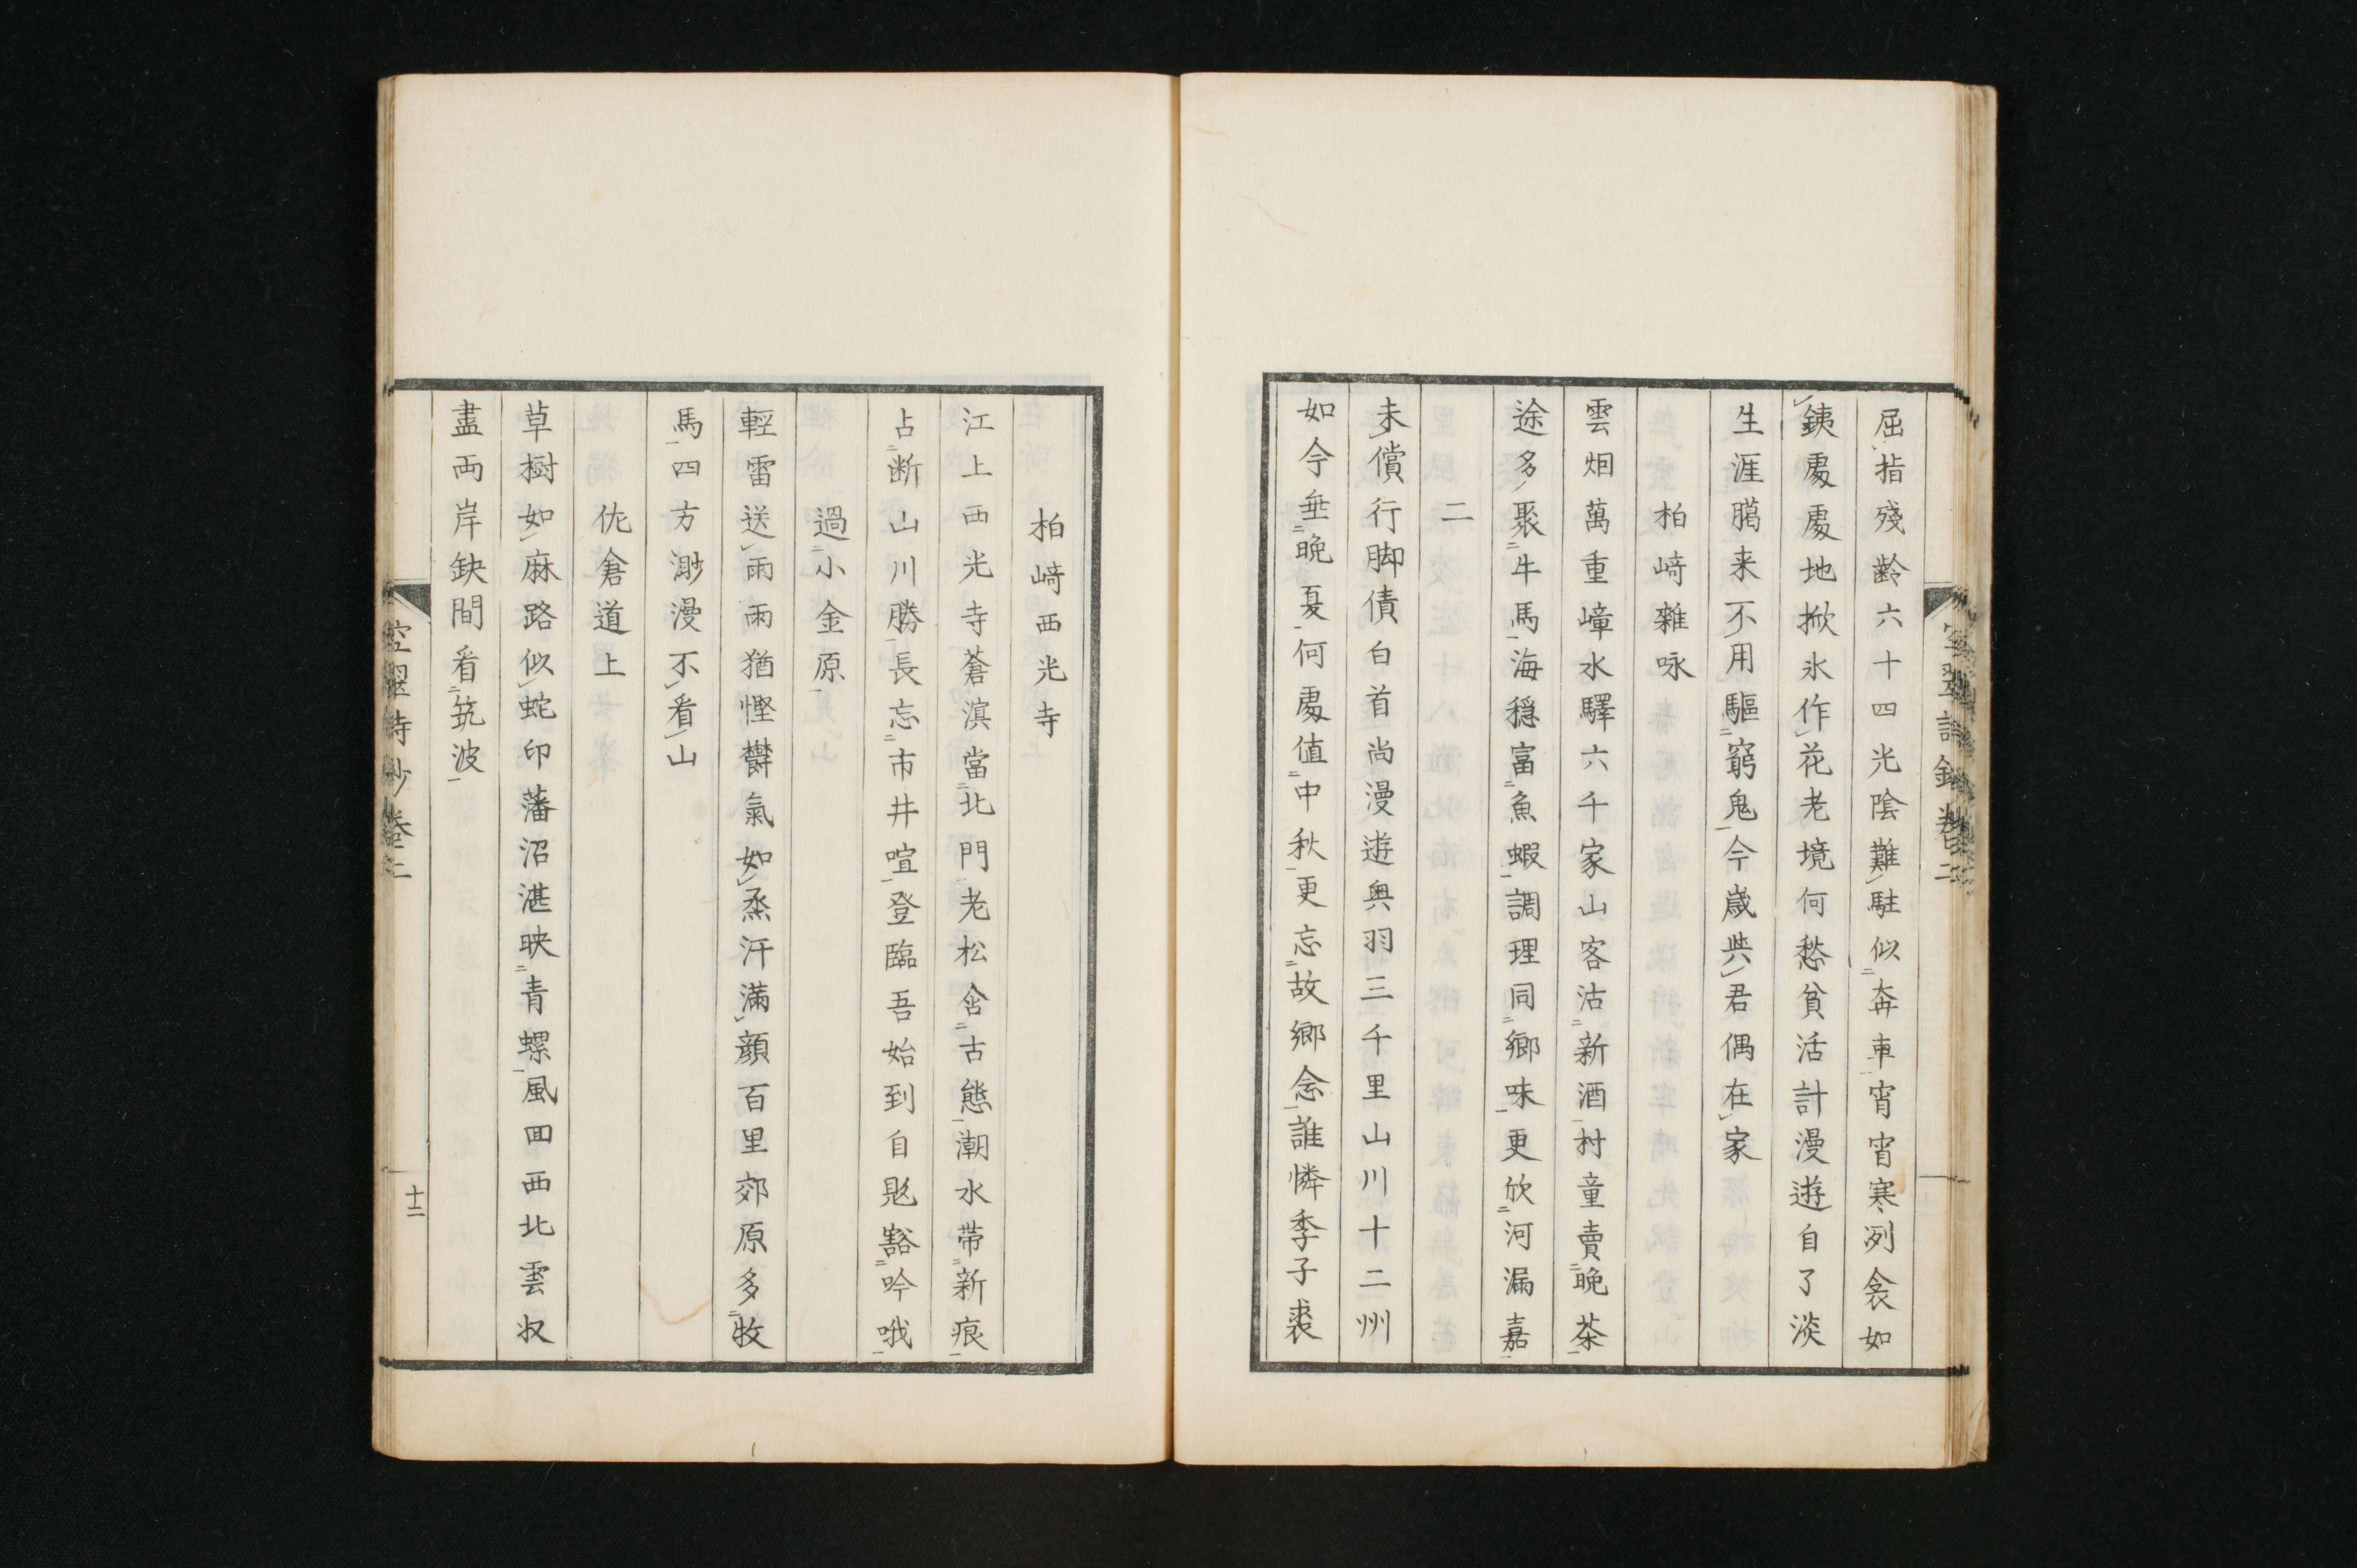 屈指殘齡六十四光陰難駐似奔車宵宵寒冽衾如
銕處處地掀氷作花老境何愁貧活計漫遊自了淡
生涯臈来不用驅窮鬼今歲共君偶在家
柏﨑雜咏
雲烟萬重嶂水驛六千家山客沽新酒村童賣晚茶
途多聚牛馬海穏富魚蝦調理同鄉味更欣河漏嘉
二
未償行脚債白首尚漫遊奥羽三千里山川十二州
如今垂晚夏何處値中秋更忘故鄉念誰憐季子裘
柏﨑西光寺
江上西光寺蒼溟當北門老松舍古態潮水帯新痕
占断山川勝長忘市井喧登臨吾始到自覺豁吟哦
過小金原
輕雷送雨雨猶慳欝氣如烝汗滿顔百里郊原多牧
馬四方渺漫不看山
佐倉道上
草樹如麻路似蛇印藩沼湛映青螺風囬西北雲収
盡両岸鈌間看筑波
空翠詩鈔卷二
十二